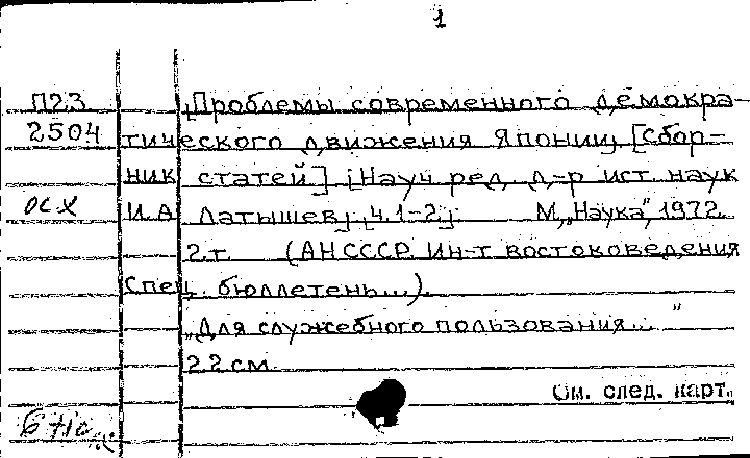 1
П23 Проблемы современного демокра-
2504 тического движения Японии [Сбор-
ник статей] [Науч ред. д-р ист. наук
ос.х И.А Латышев]. [ч. 1-2] М, „Наука", 1972.
2 т. (АН СССР. Ин-т востоковедения
Спец. бюллетень...).
„Для служебного пользования... "
22 см.
См. след. карт.